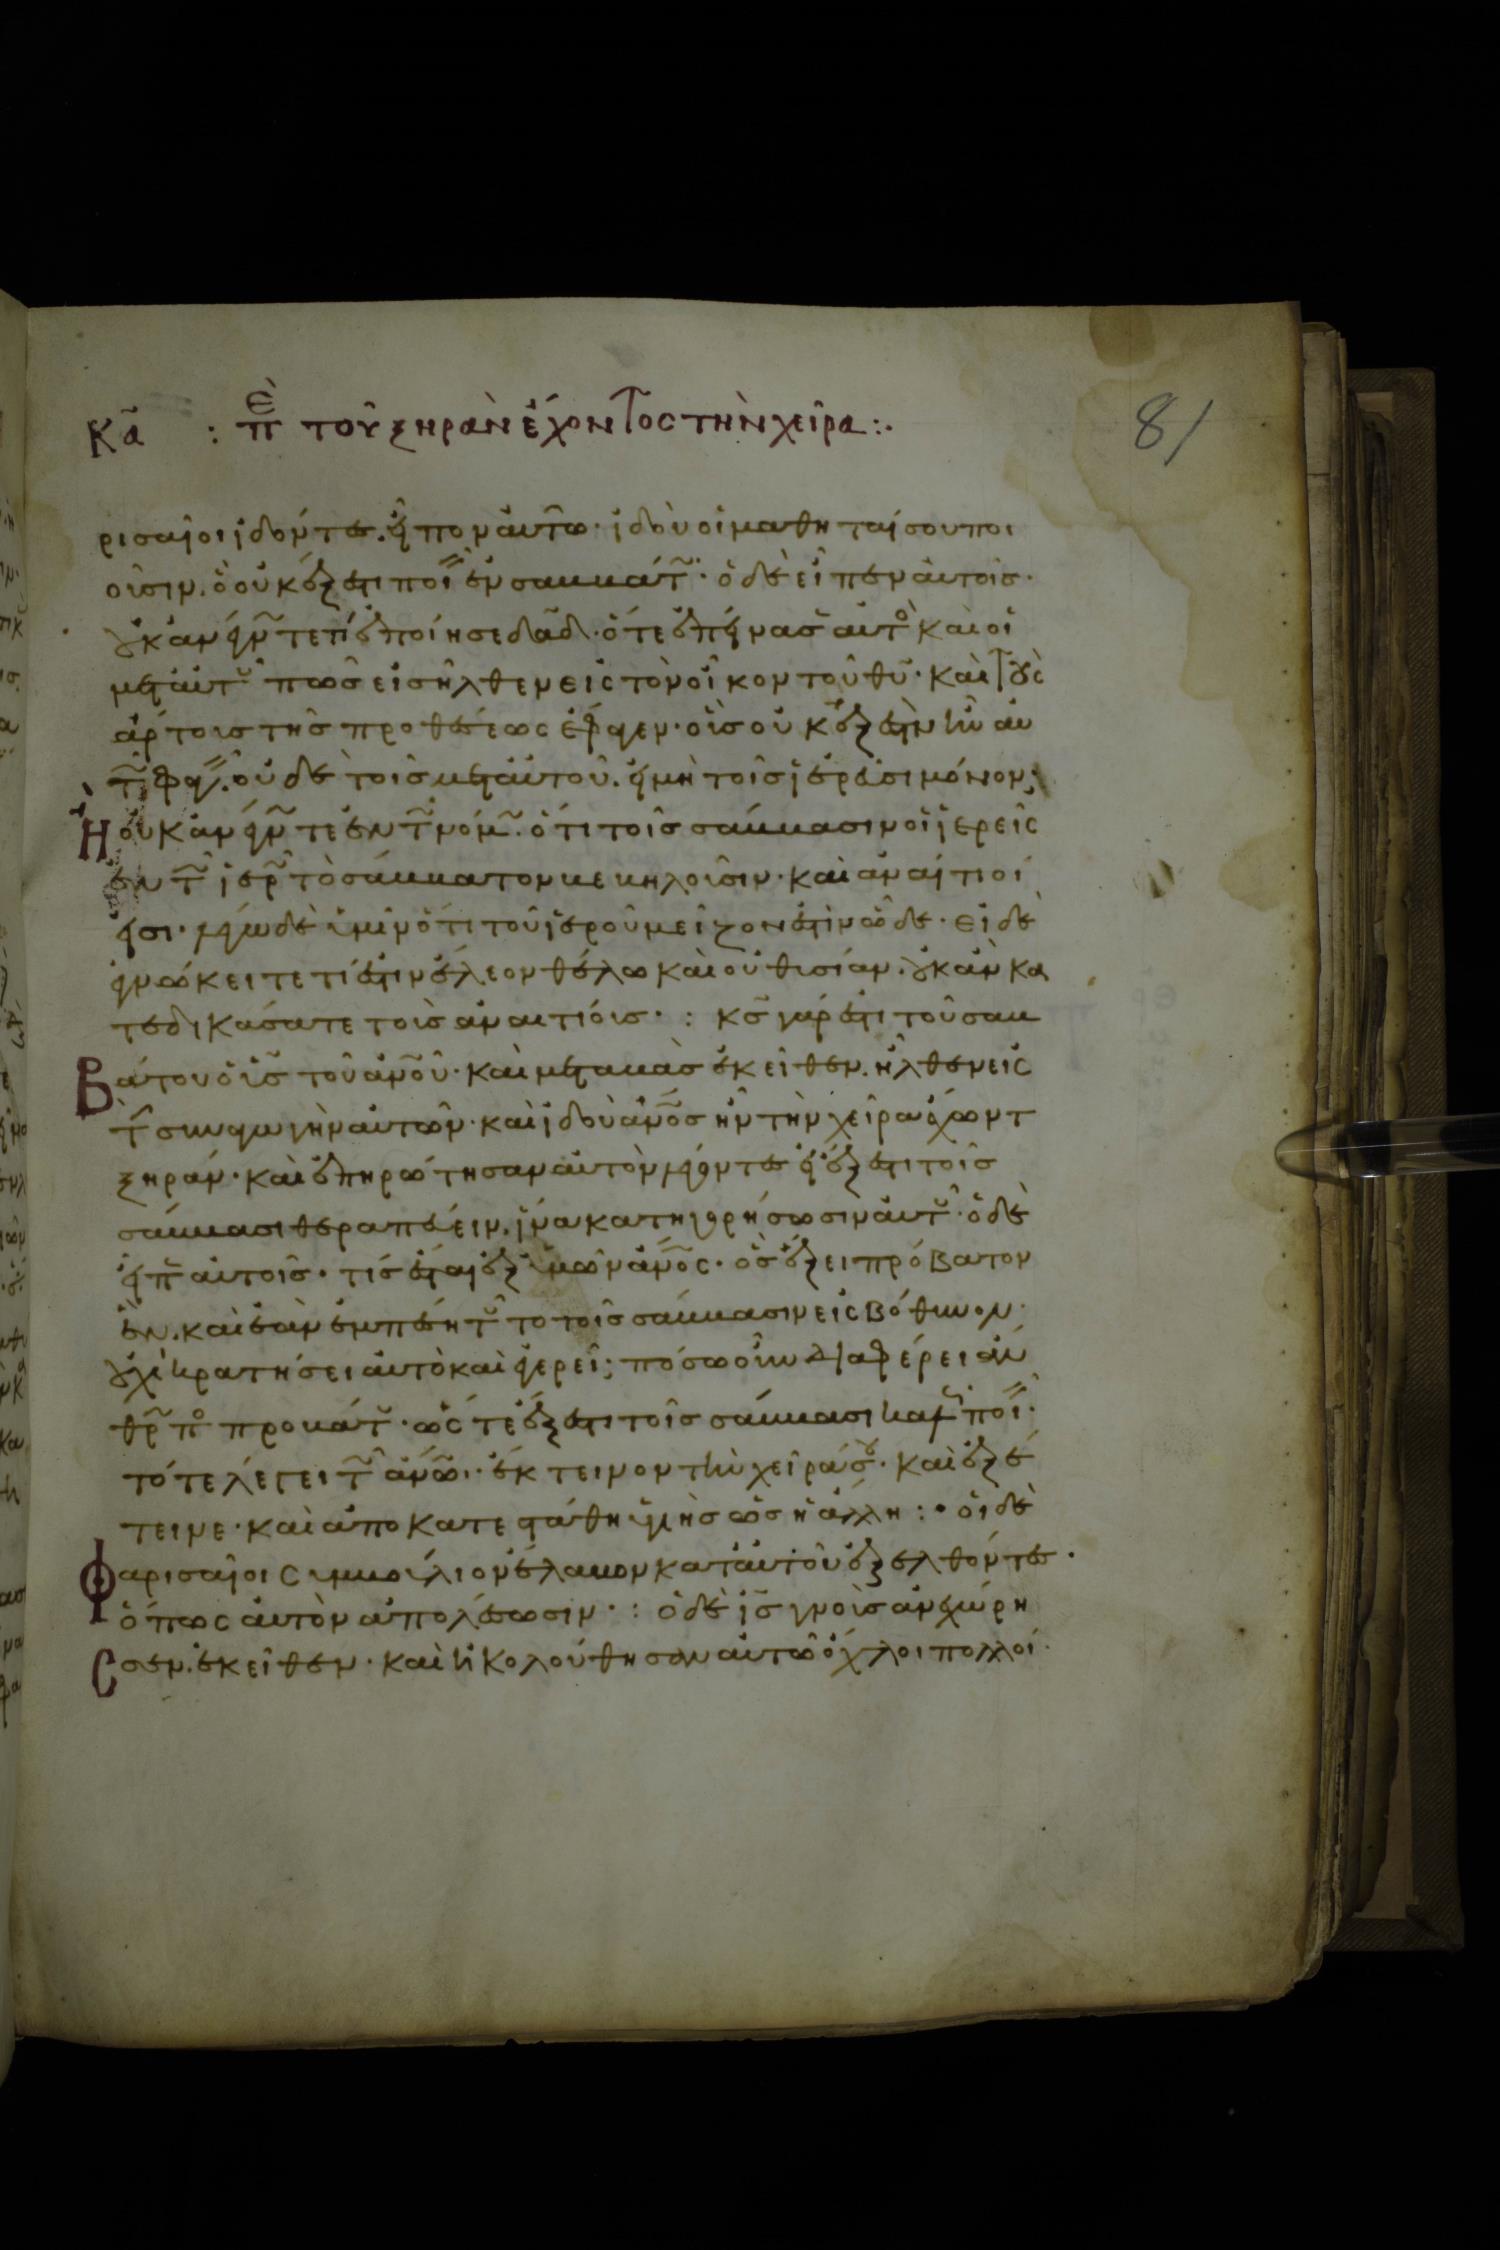 κα̃ : πὲ τοῦ ξηρὰν ἔχοντος τὴν χεῖρα :· 81
ρισαῖοι ἰδόντες. εἶπον αὐτῶ· ἰδοὺ οἱ μαθηταί σου ποι
οῦσιν. ὃ οὐκ ἔξεστι ποιεῖν ἐν σαββάτω· ὁ δὲ εἶπεν αὐτοῖς·
οὐκ ἀνέγνωτε τί ἐποίησε δᾱδ· ὅτε ἐπείνασεν αὐτὸς καὶ οἱ
μετ αὐτοῦ πῶς εἰσῆλθεν εἰς τὸν οἶκον τοῦ θῡ· καὶ τοὺς
ἄρτους τῆς προθέσεως ἔφαγεν· οὓς οὐκ ἐξὸν ἦν αὐ
τῶ φαγεῖν. οὐδὲ τοῖς μετ αὐτοῦ. εἰ μὴ τοῖς ἱερεῦσι μόνον;
Ἢ οὐκ ἀνέγνωτε ἐν τῶ νόμω. ὅτι τοῖς σάββασιν οἱ ἱερεῖς
ἐν τῶ ἱερῶ τὸ σάββατον βεβηλοῦσιν· καὶ ἀναίτιοί
εἰσι· λέγω δὲ ὑμῖν ὅτι τοῦ ἱεροῦ μεῖζον ἐστὶν ὧδε· εἰ δὲ
ἐγνώκειτε τί ἐστιν ἔλεον θέλω καὶ οὐ θυσίαν. οὐκ ἂν κα
τεδικάσατε τοὺς ἀναιτίους· : κς̄ γάρ ἐστι τοῦ σαβ
Βάτου ὁ ῡς̄ τοῦ ἀνοῦ· καὶ μεταβὰς ἐκεῖθεν. ἦλθεν εἰς
τὴν συναγωγὴν αὐτῶν· καὶ ἰδοὺ ἄνος ἦν τὴν χεῖρα ἔχων
ξηράν· καὶ ἐπηρώτησαν αὐτὸν λέγοντες εἰ ἔξεστι τοῖς
σάββασι θεραπεύειν. ἵνα κατηγορήσωσιν αὐτοῦ· ὁ δὲ
εἶπεν αὐτοῖς· τίς ἔσται ἐξ ὑμῶν ἄνος· ὃς ἕξει πρόβατον
ἕν. καὶ ἐὰν ἐμπέση τοῦτο τοῖς σάββασιν εἰς βόθυνον·
οὐχὶ κρατήσει αὐτὸ καὶ ἐγερεῖ; πόσω οὖν διαφέρει ἄν
θρωπος προβάτου· ὥστε ἔξεστι τοῖς σάββασι καλῶς ποιεῖν·
τότε λέγει τῶ ἀνω· ἔκτεινον τὴν χεῖρά σου· καὶ ἐξέ
τεινε· καὶ ἀποκατεστάθη ὑγιὴς ὡς ἡ ἄλλη :· οἱ δὲ
Φαρισαῖοι συμβούλιον ἔλαβον κατ αὐτοῦ ἐξελθόντες·
ὅπως αὐτὸν ἀπολέσωσιν· : ὁ δὲ ις̄ γνοὺς ἀνεχώρη
Σσεν. ἐκεῖθεν· καὶ ἠκολούθησαν αὐτῶ ὄχλοι πολλοί·